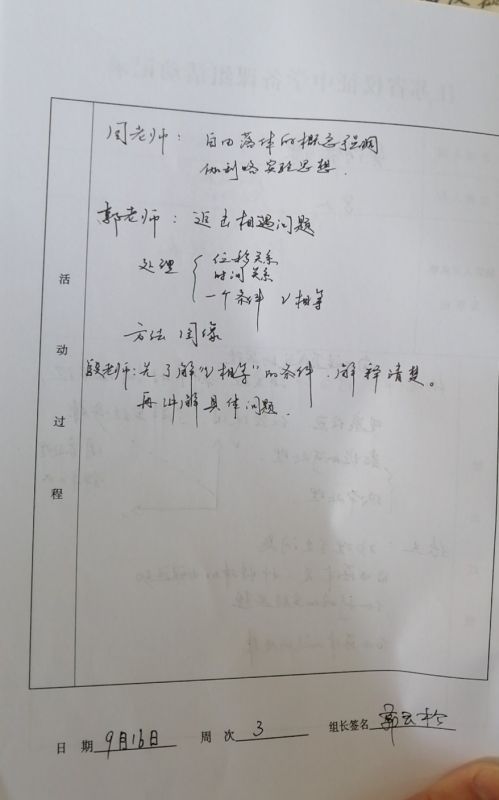 周老师：自由落体的概念强调
伽利略实验思想.
郭老师：追击相遇问题
处理 { 位移关系
时间关系
一个条件 v相等
方法 图像
段老师:先了解“v相等”的条件，解释清楚。
再讲解具体问题.
活动过程
日 期 9月16日 周 次 3 组长签名